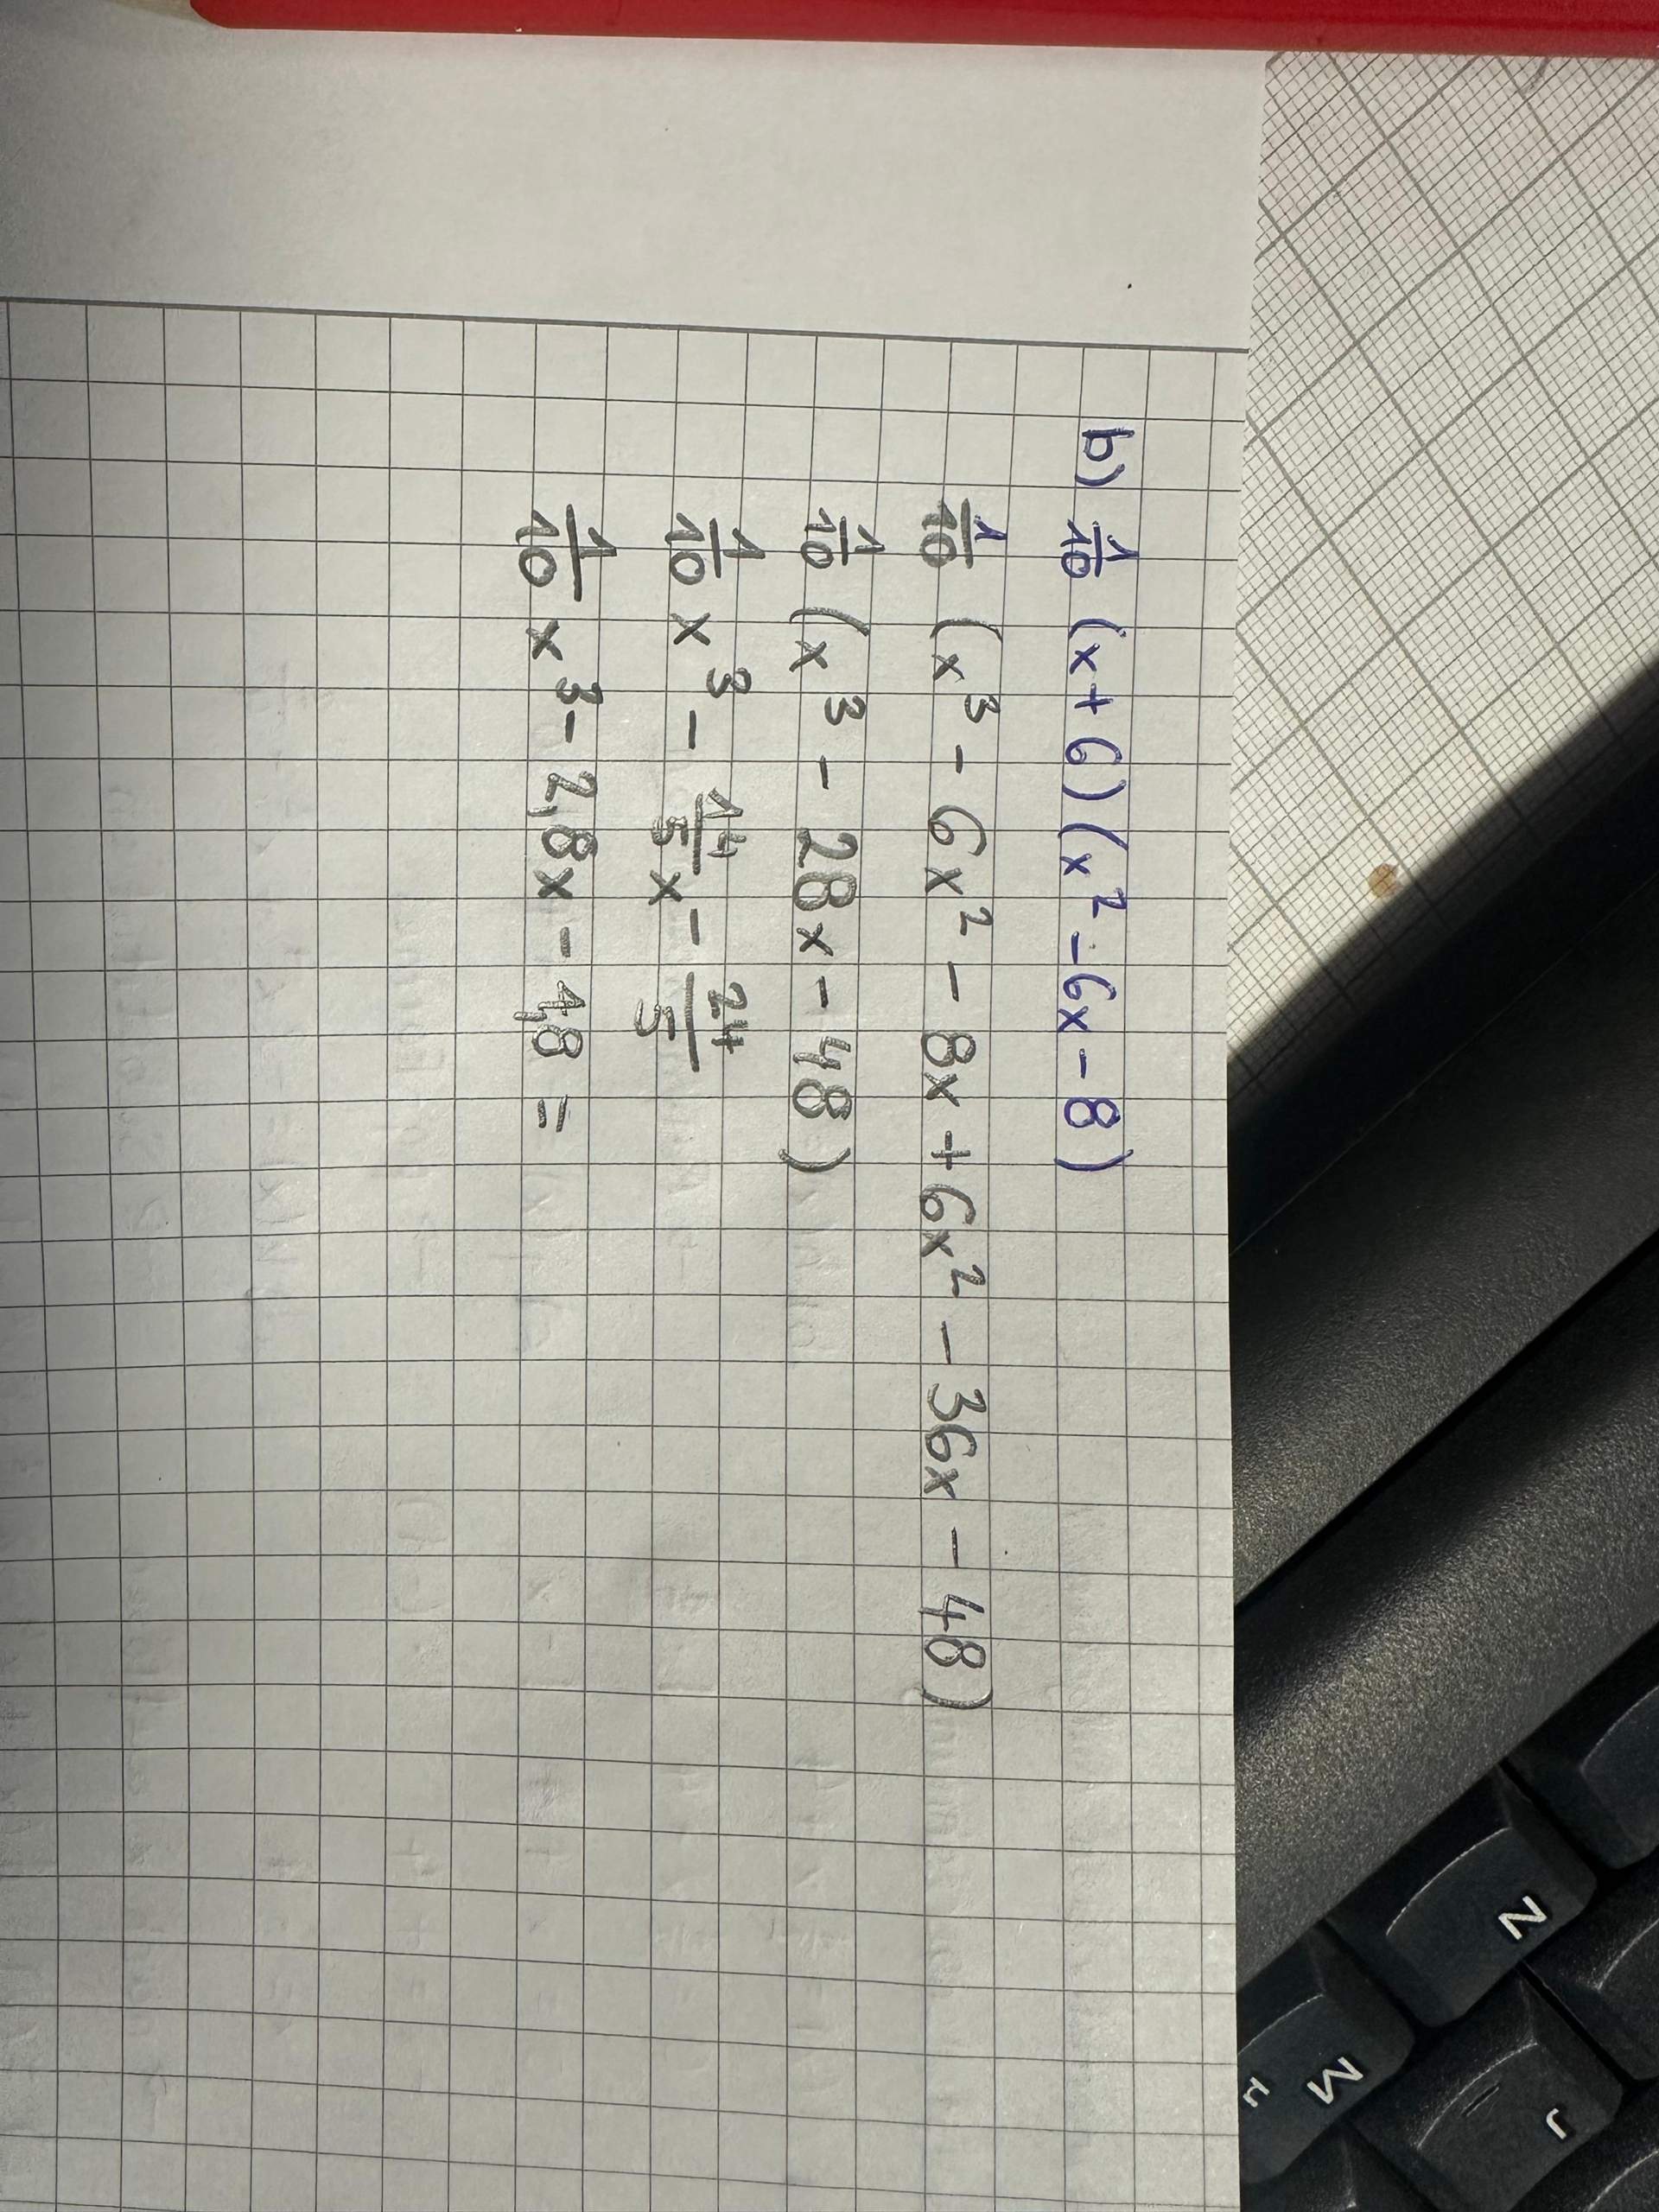 b) 1/10 (x+6)(x² -6x-8)
1/10 (x³ - 6x² - 8x + 6x² - 36x - 48)
1/10 (x³ - 28x - 48)
1/10 x³ - 14/5 x - 24/5
1/10 x³ - 2,8x - 4,8 =
N
M
µ
J